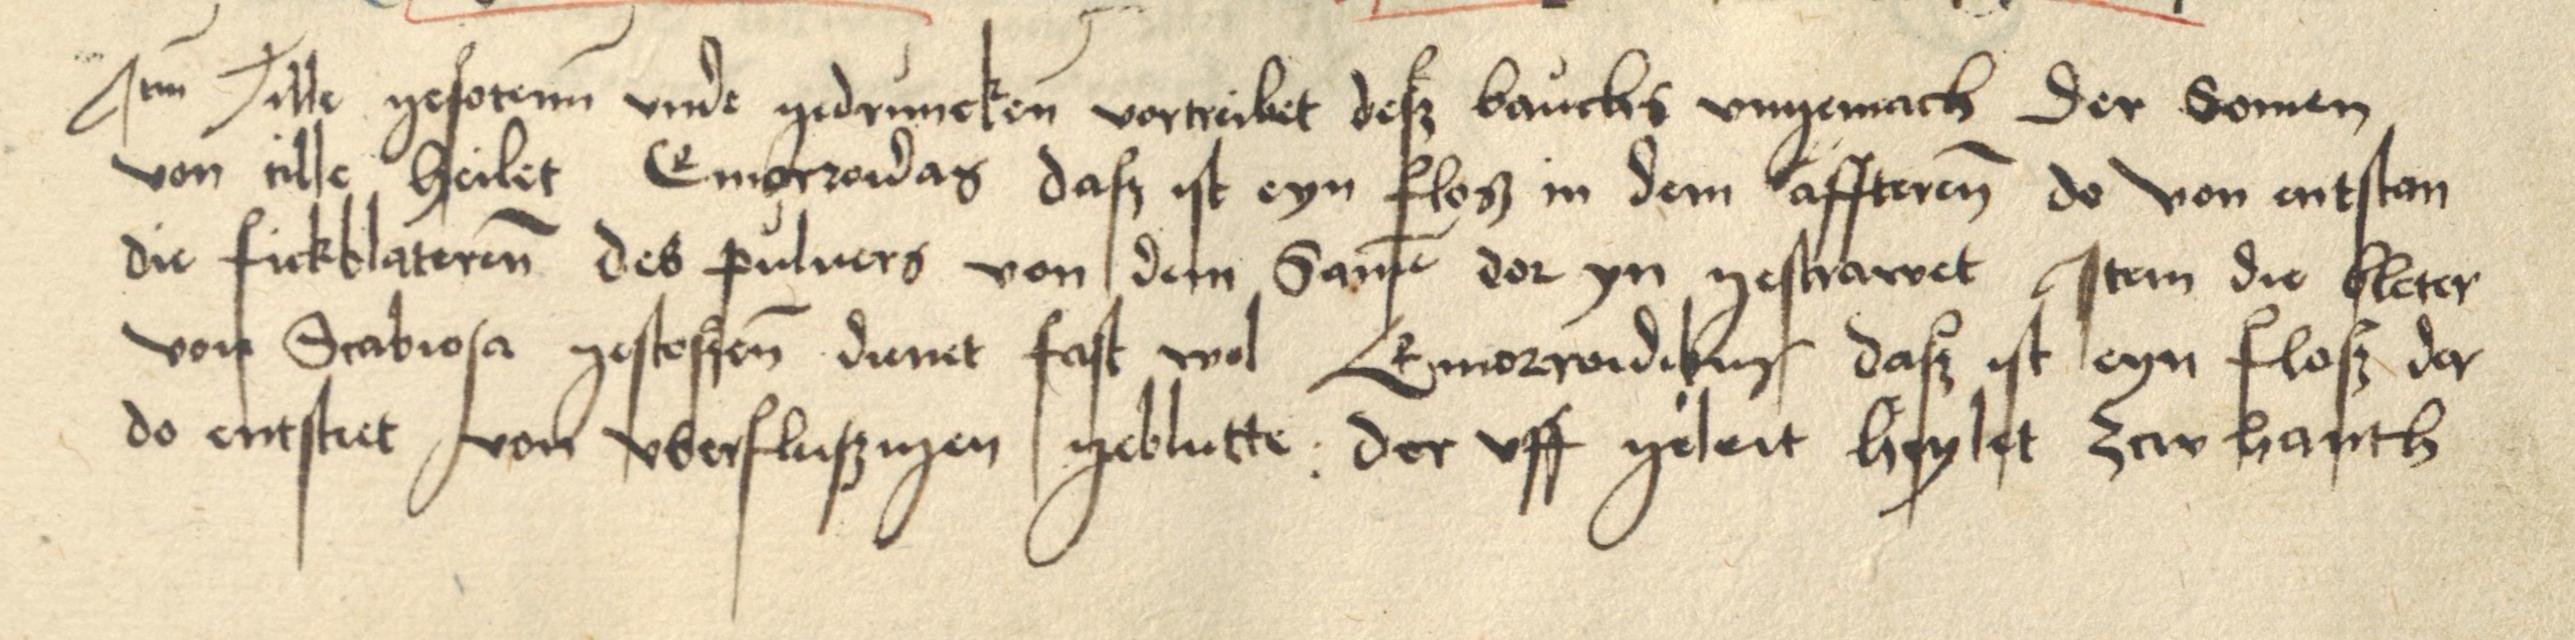 Itm Tille gesotenn vnde gedrunckenn vortreibet desz bauchs vngemach Der Somen
von tille heilet Emorroidas dasz ist eyn flosz in dem afftterenn do von entstan
die fickblaterenn des puluers von dem Same dor yn gestrawet Item die bleter
von Scabiosa gestossenn dienet fast wol Emorroidibus dasz ist eyn flosz der
do entstiet von vberfluszigen geblutte : der vff geleit heylet zcw hanth